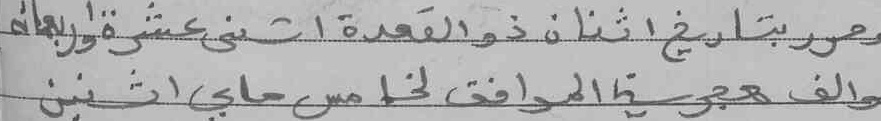 وحرر بتاريخ اثنان ذو القعدة اثنى عشرة واربعمائة
والف هجرية الموافق لخامس ماي اثنين